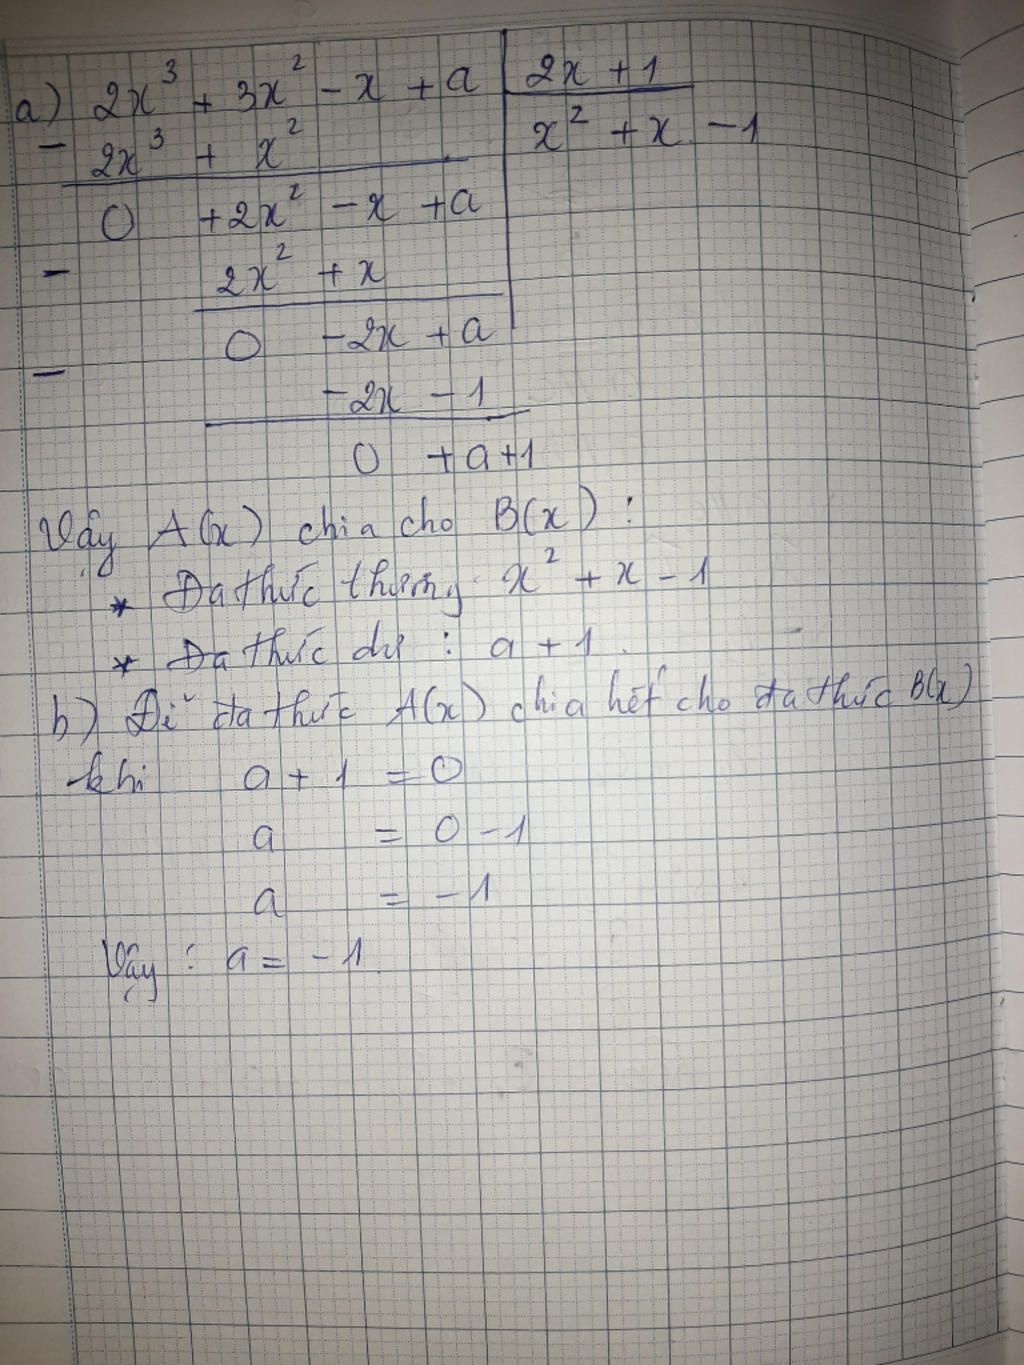 a) 2x³ + 3x² - x + a | 2x + 1
- 2x³ + x² | x² + x - 1
0 + 2x² - x + a
- 2x² + x
0 - 2x + a
- - 2x - 1
0 + a + 1
Vậy A(x) chia cho B(x) :
* Đa thức thương x² + x - 1
* Đa thức dư : a + 1.
b) Để đa thức A(x) chia hết cho đa thức B(x)
khi a + 1 = 0
a = 0 - 1
a = - 1
Vậy : a = - 1.